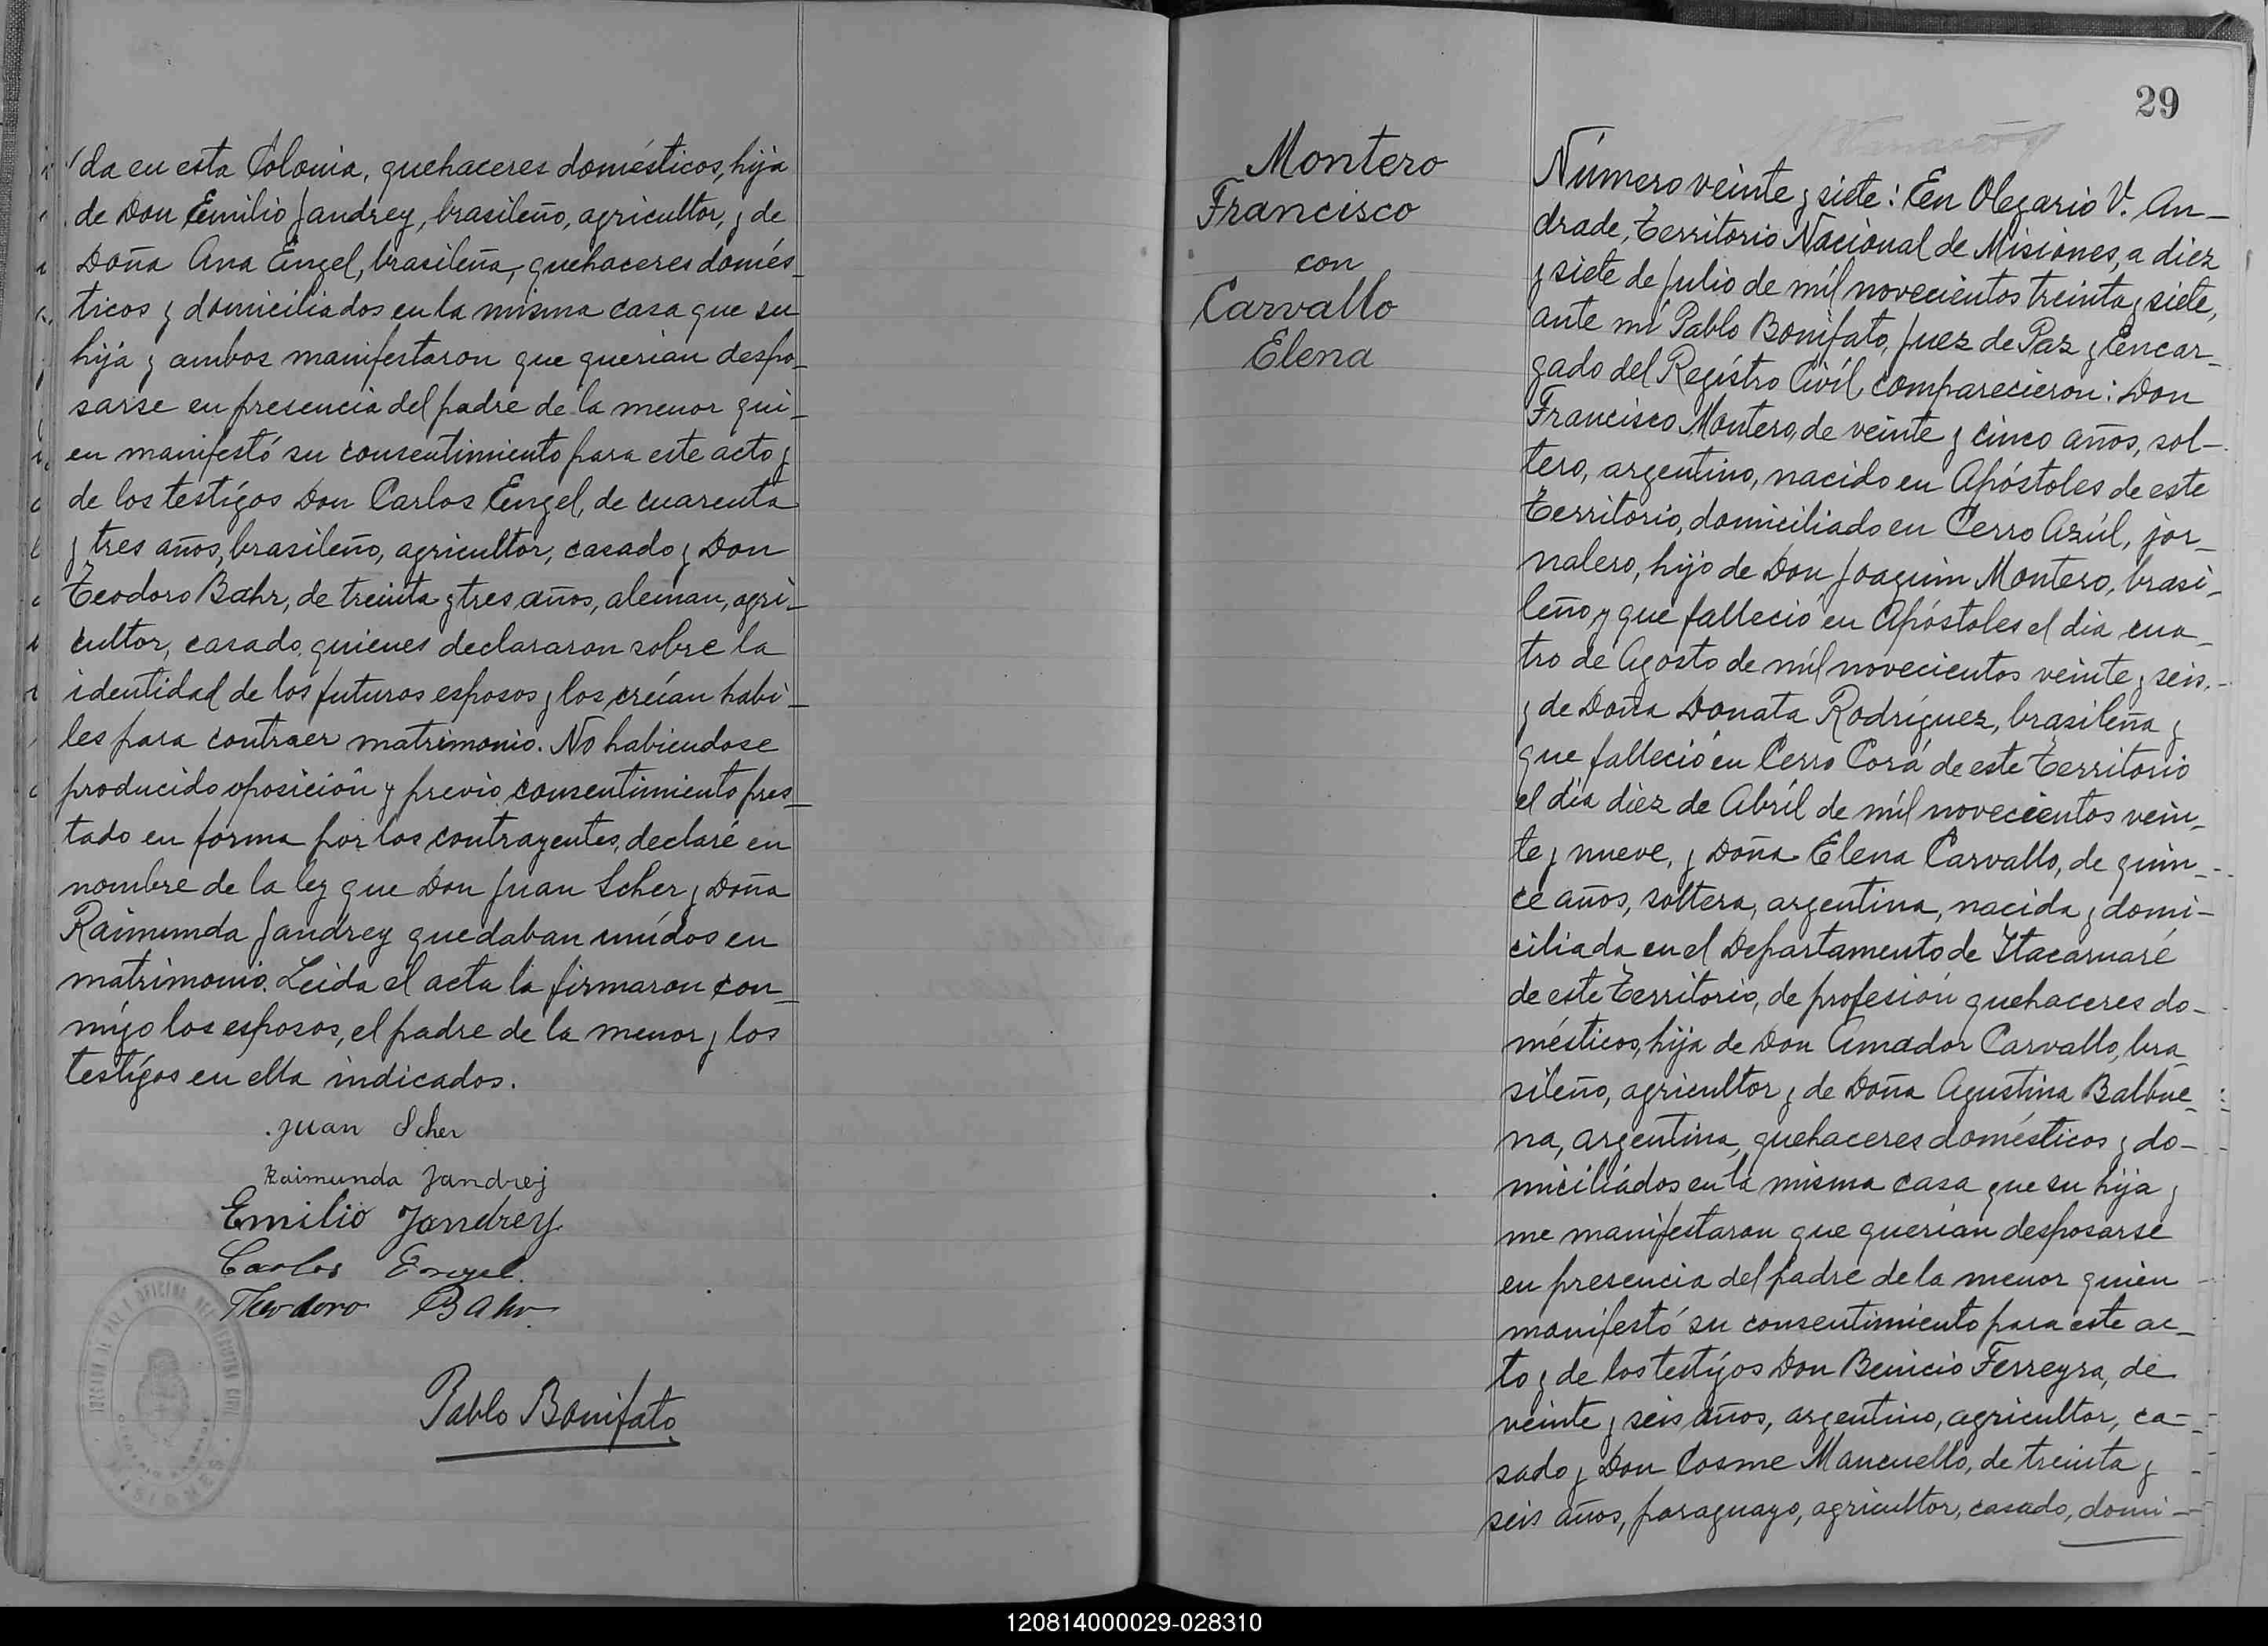 da en esta Colonia, quehaceres domésticos, hija
de Don Emilio Jandrey, brasileño, agricultor, y de
Doña Ana Engel, brasileña, quehaceres domés-
ticos y domiciliados en la misma casa que su
hija y ambos manifestaron que querian despo-
sarse en presencia del padre de la menor qui-
en manifestó su consentimiento para este acto y
de los testígos Don Carlos Engel, de cuarenta
y tres años, brasileño, agricultor, casado y Don
Teodoro Bahr, de treinta y tres años, aleman, agri-
cultor, casado, quienes declararon sobre la
identidad de los futuros esposos y los creían habi-
les para contraer matrimonio. No habiendose
producido oposición y previo consentimiento pres-
tado en forma por los contrayentes, declaré en
nombre de la ley que Don Juan Scher y Doña
Raimunda Jandrey quedaban unídos en
matrimonio. Leida el acta la firmaron con-
migo los esposos, el padre de la menor y los
testígos en ella indicados.
Juan Scher
Raimunda Jandrej
Emilio Jandrey
Carlos Engel.
Theodoro Bahr.
Pablo Bonifato
MISIONES
29
Montero
Francisco
con
Carvallo
Elena
Número veinte y siete: En Olegario V. An-
drade, Territorio Nacional de Misiones, a diez
y siete de Julio de míl novecientos treinta y siete,
ante mí Pablo Bonifato, Juez de Paz y Encar-
gado del Regístro Civíl, comparecieron: Don
Francisco Montero, de veinte y cinco años, sol-
tero, argentino, nacido en Apóstoles de este
Territorio, domiciliado en Cerro Azúl, jor-
nalero, hijo de Don Joaquin Montero, brasi-
leño y que falleció en Apóstoles el dia cua-
tro de Agosto de míl novecientos veinte y seis,
y de Doña Donata Rodríguez, brasileña y
que falleció en Cerro Corá de este Territorio
el día diez de Abríl de míl novecientos vein-
te y nueve, y Doña Elena Carvallo, de quin-
ce años, soltera, argentina, nacida y domi-
ciliada en el Departamento de Itacaruaré
de este Territorio, de profesión quehaceres do-
mésticos, hija de Don Amador Carvallo, bra
sileño, agricultor y de Doña Agustina Balbue-
na, argentina, quehaceres domésticos y do-
miciliados en la misma casa que su hija y
me manifestaron que querían desposarse
en presencia del padre de la menor quien
manifestó su consentimiento para este ac-
to y de los testígos Don Benicio Ferreyra, de
veinte y seis años, argentino, agricultor, ca-
sado y Don Cosme Mancuello, de treinta y
seis años, paraguayo, agricultor, casado, domi-
120814000029-028310